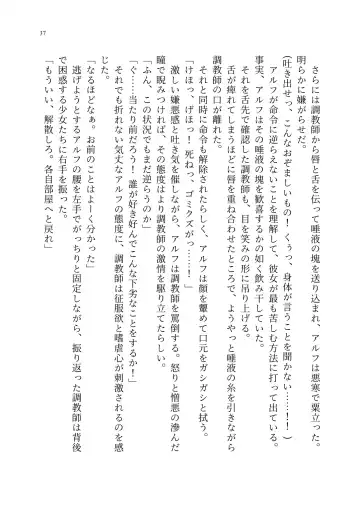 37
さらには調教師から唇と舌を伝って唾液の塊を送り込まれ、アルフは悪寒で粟立った。
明らかに嫌がらせだ。
(吐き出せっ、こんなおぞましいもの! くぅっ、身体が言うことを聞かない……!)
アルフが命令に逆らえないことを理解して、彼女が最も苦しむ方法に打って出ている。
事実、アルフはその唾液の塊を歓喜するかの如く飲み干していた。
それを舌先で確認した調教師も、目を笑みの形に吊り上げる。
舌が痺れてしまうほどに唇を重ね合わせたところで、ようやっと唾液の糸を引きながら
調教師の口が離れた。
それと同時に命令も解除されたらしく、アルフは顔を顰めて口元をガシガシと拭う。
「けほっ、げほっ! 死ねっ、ゴミクズがっ……!」
激しい嫌悪感と吐き気を催しながら、アルフは調教師を罵倒する。怒りと憎悪の滲んだ
瞳で睨みつけるが、その態度はより調教師の激情を駆り立てたらしい。
「ふん、この状況でもまだ逆らうのか」
「ぐ……当たり前だろう! 誰が好き好んでこんな下劣なことをするか!」
それでも折れない気丈なアルフの態度に、調教師は征服欲と嗜虐心が刺激されるのを感
じた。
「なるほどなぁ。お前のことはよーく分かった」
逃げようとするアルフの腰を左手でがっちりと固定しながら、振り返った調教師は背後
で困惑する少女たちに右手を振った。
「もういい、解散しろ。各自部屋へと戻れ」